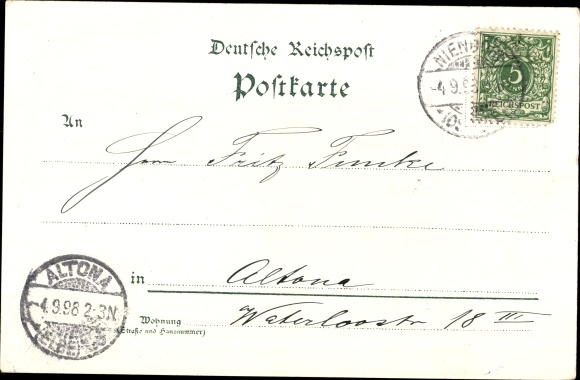 Deutsche Reichspost
Postkarte
5
REICHSPOST
4.9.98
An
Herrn Fritz Funke
in Altona
Wohnung Waterloostr 18 III
(Straße und Hausnummer)
ALTONA
4.9.98 2-3N